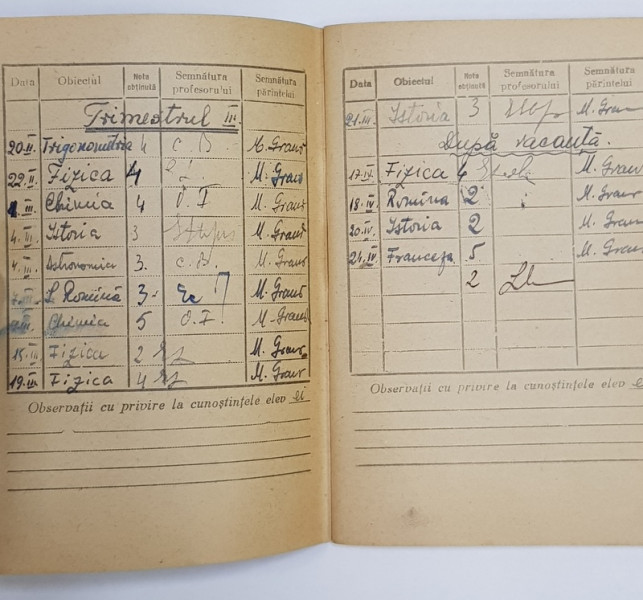 Data Obiectul Nota obținută Semnătura profesorului Semnătura părintelui
Trimestrul III.
20.II. Trigonometria 4 C.B. M. Graur
22.II. Fizica 4 M. Graur
1.III. Chimia 4 O.F. M. Graur
4.III. Istoria 3 M. Graur
4.III. Astronomia 3. C.B. M. Graur
7.III. L. Romînă 3 M. Graur
Chimia 5 O.F. M. Graur
15.III. Fizica 2 M. Graur
19.III. Fizica 4 M. Graur
Observații cu privire la cunoștințele elev ei
Data Obiectul Nota obținută Semnătura profesorului Semnătura părintelui
21.III. Istoria 3 M. Graur
După vacanță.
17.IV. Fizica 4 M. Graur
18.IV. Romîna 2 M. Graur
20.IV. Istoria 2 M. Graur
24.IV. Franceza 5 M. Graur
2
Observații cu privire la cunoștințele elev